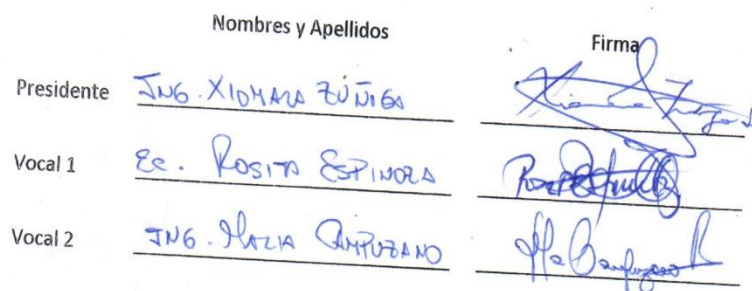 Nombres y Apellidos Firma
Presidente ING. XIOMARA ZÚÑIGA
Vocal 1 Ec. ROSITA ESPINOZA
Vocal 2 ING. MARIA CAMPUZANO